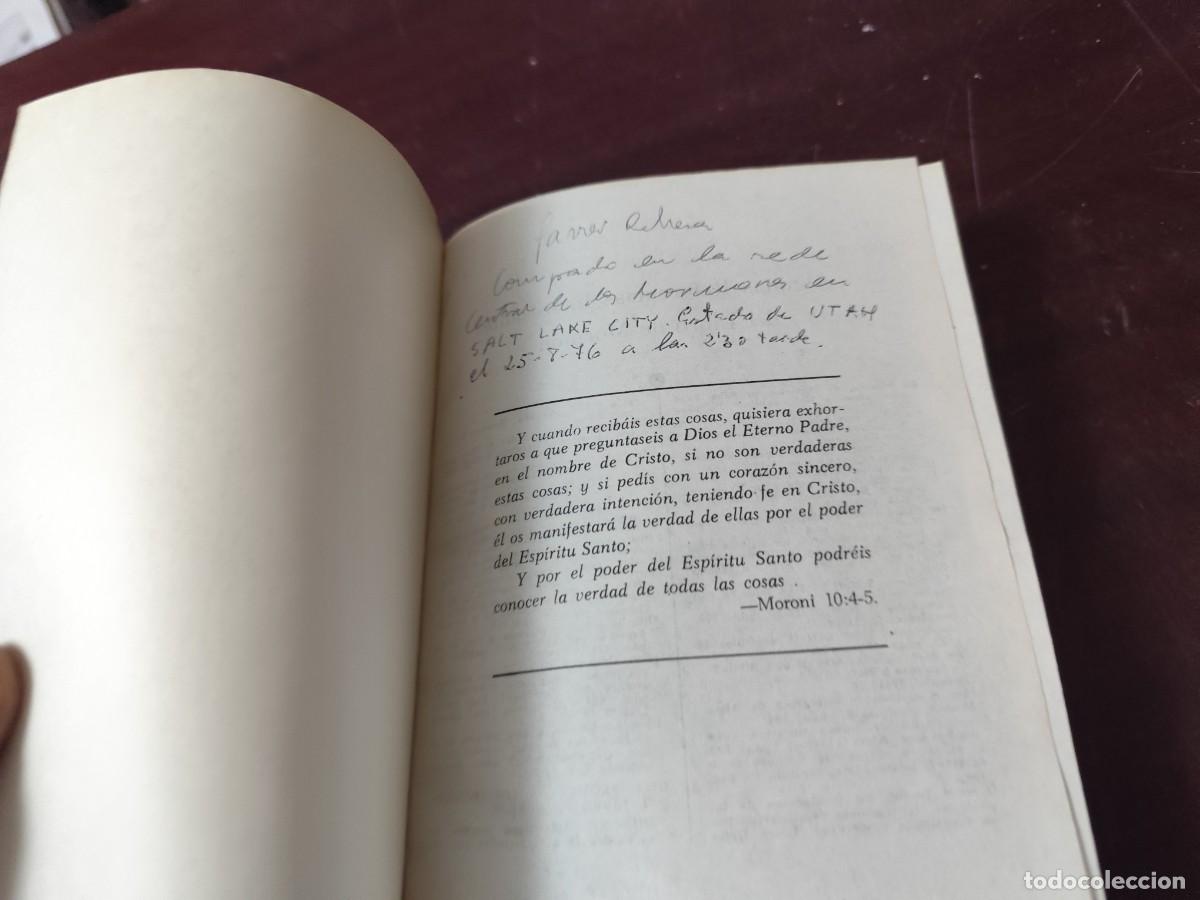 Comprado en la sede
central de los Mormones en
SALT LAKE CITY. Estado de UTAH
el 25-8-76 a las 2'30 tarde.
Y cuando recibáis estas cosas, quisiera exhor-
taros a que preguntaseis a Dios el Eterno Padre,
en el nombre de Cristo, si no son verdaderas
estas cosas; y si pedís con un corazón sincero,
con verdadera intención, teniendo fe en Cristo,
él os manifestará la verdad de ellas por el poder
del Espíritu Santo;
Y por el poder del Espíritu Santo podréis
conocer la verdad de todas las cosas .
—Moroni 10:4-5.
todocoleccion